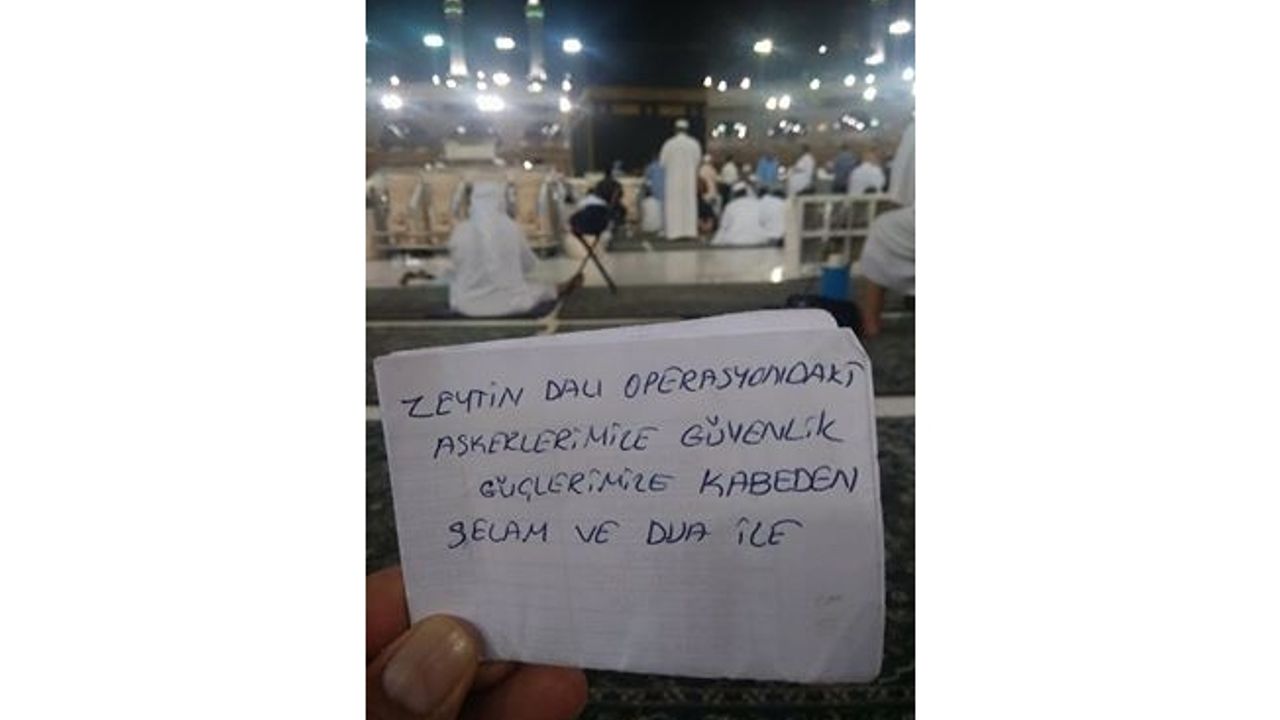 ZEYTİN DALI OPERASYONDAKİ
ASKERLERİMİZE GÜVENLİK
GÜÇLERİMİZE KABEDEN
SELAM VE DUA İLE